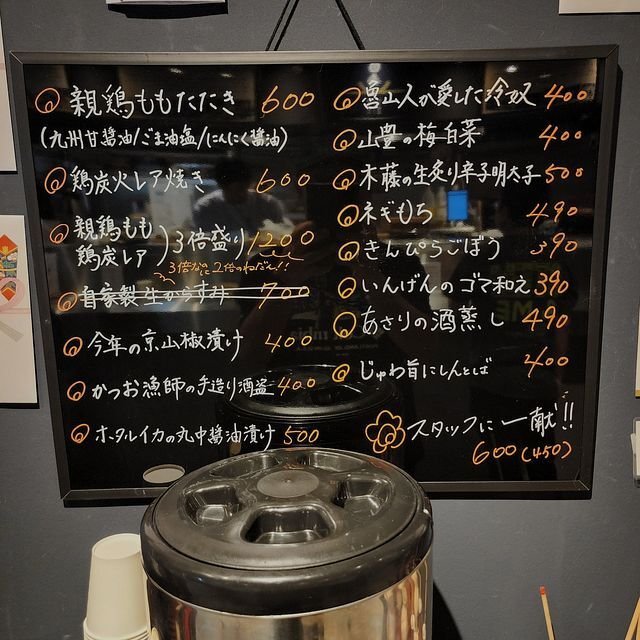 親鶏ももたたき 600
(九州甘醤油/ごま油塩/にんにく醤油)
鶏炭火レア焼き 600
親鶏もも
鶏炭レア
3倍盛り 1200
3倍なのに2倍のねだん!!
自家製生からすみ 700
今年の京山椒漬け 400
かつお漁師の手造り酒盗 400
ホタルイカの丸中醤油漬け 500
魯山人が愛した冷奴 400
山豊の梅白菜 400
木藤の生炙り辛子明太子 500
ネギもち 490
きんぴらごぼう 390
いんげんのゴマ和え 390
あさりの酒蒸し 490
じゅわ旨にしんとば 400
スタッフに一献!!
600(450)